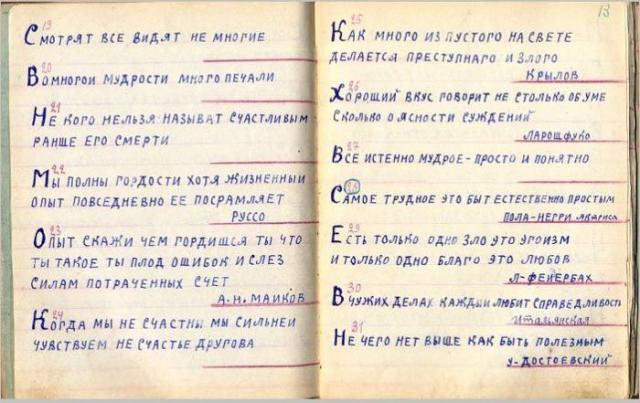 19
Смотрят все видят не многие
20
Вомногои мудрости много печали
21
Не кого нельзя называт счастливым
ранше его смерти
22
Мы полны гордости хотя жизненныи
опыт повседневно ее посрамляет
Руссо
23
Опыт скажи чем гордишся ты что
ты такое ты плод ошибок и слез
силам потраченных счет
А.Н. Маиков
24
Когда мы не счастны мы сильнеи
чувствуем не счастье другова
13
25
Как много из пустого на свете
делается преступнаго и злого
Крылов
26
Хороший вкус говорит не столько об уме
сколько о ясности суждений
Ларошфуко
27
Все истенно мудрое - просто и понятно
28
Самое трудное это быт естественно простым
Пола-Негри
29
Есть только одно зло это эгоизм
и только одно благо это любов
Л-Фейербах
30
В чужих делах каждыи любит справедливость
Итальянская
31
Не чего нет выше как быть полезным
У-Достоевский